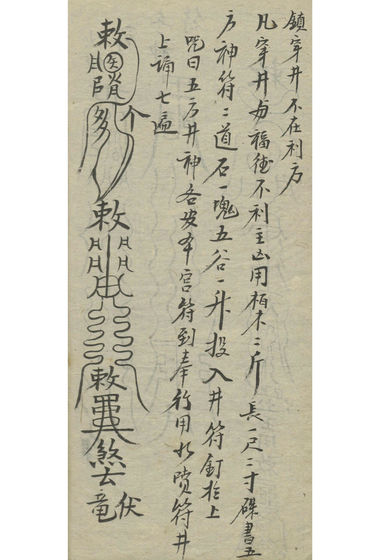 鎮穿井不在利方
凡穿井与福德不利主凶用柏木二斤長一尺二寸硃書五
方神符二道石一塊五谷一升投入井符釘於上
咒曰五方井神各安本宮符到奉行用水噴符井
上誦七遍
敕
敕
敕
煞去
伏竜